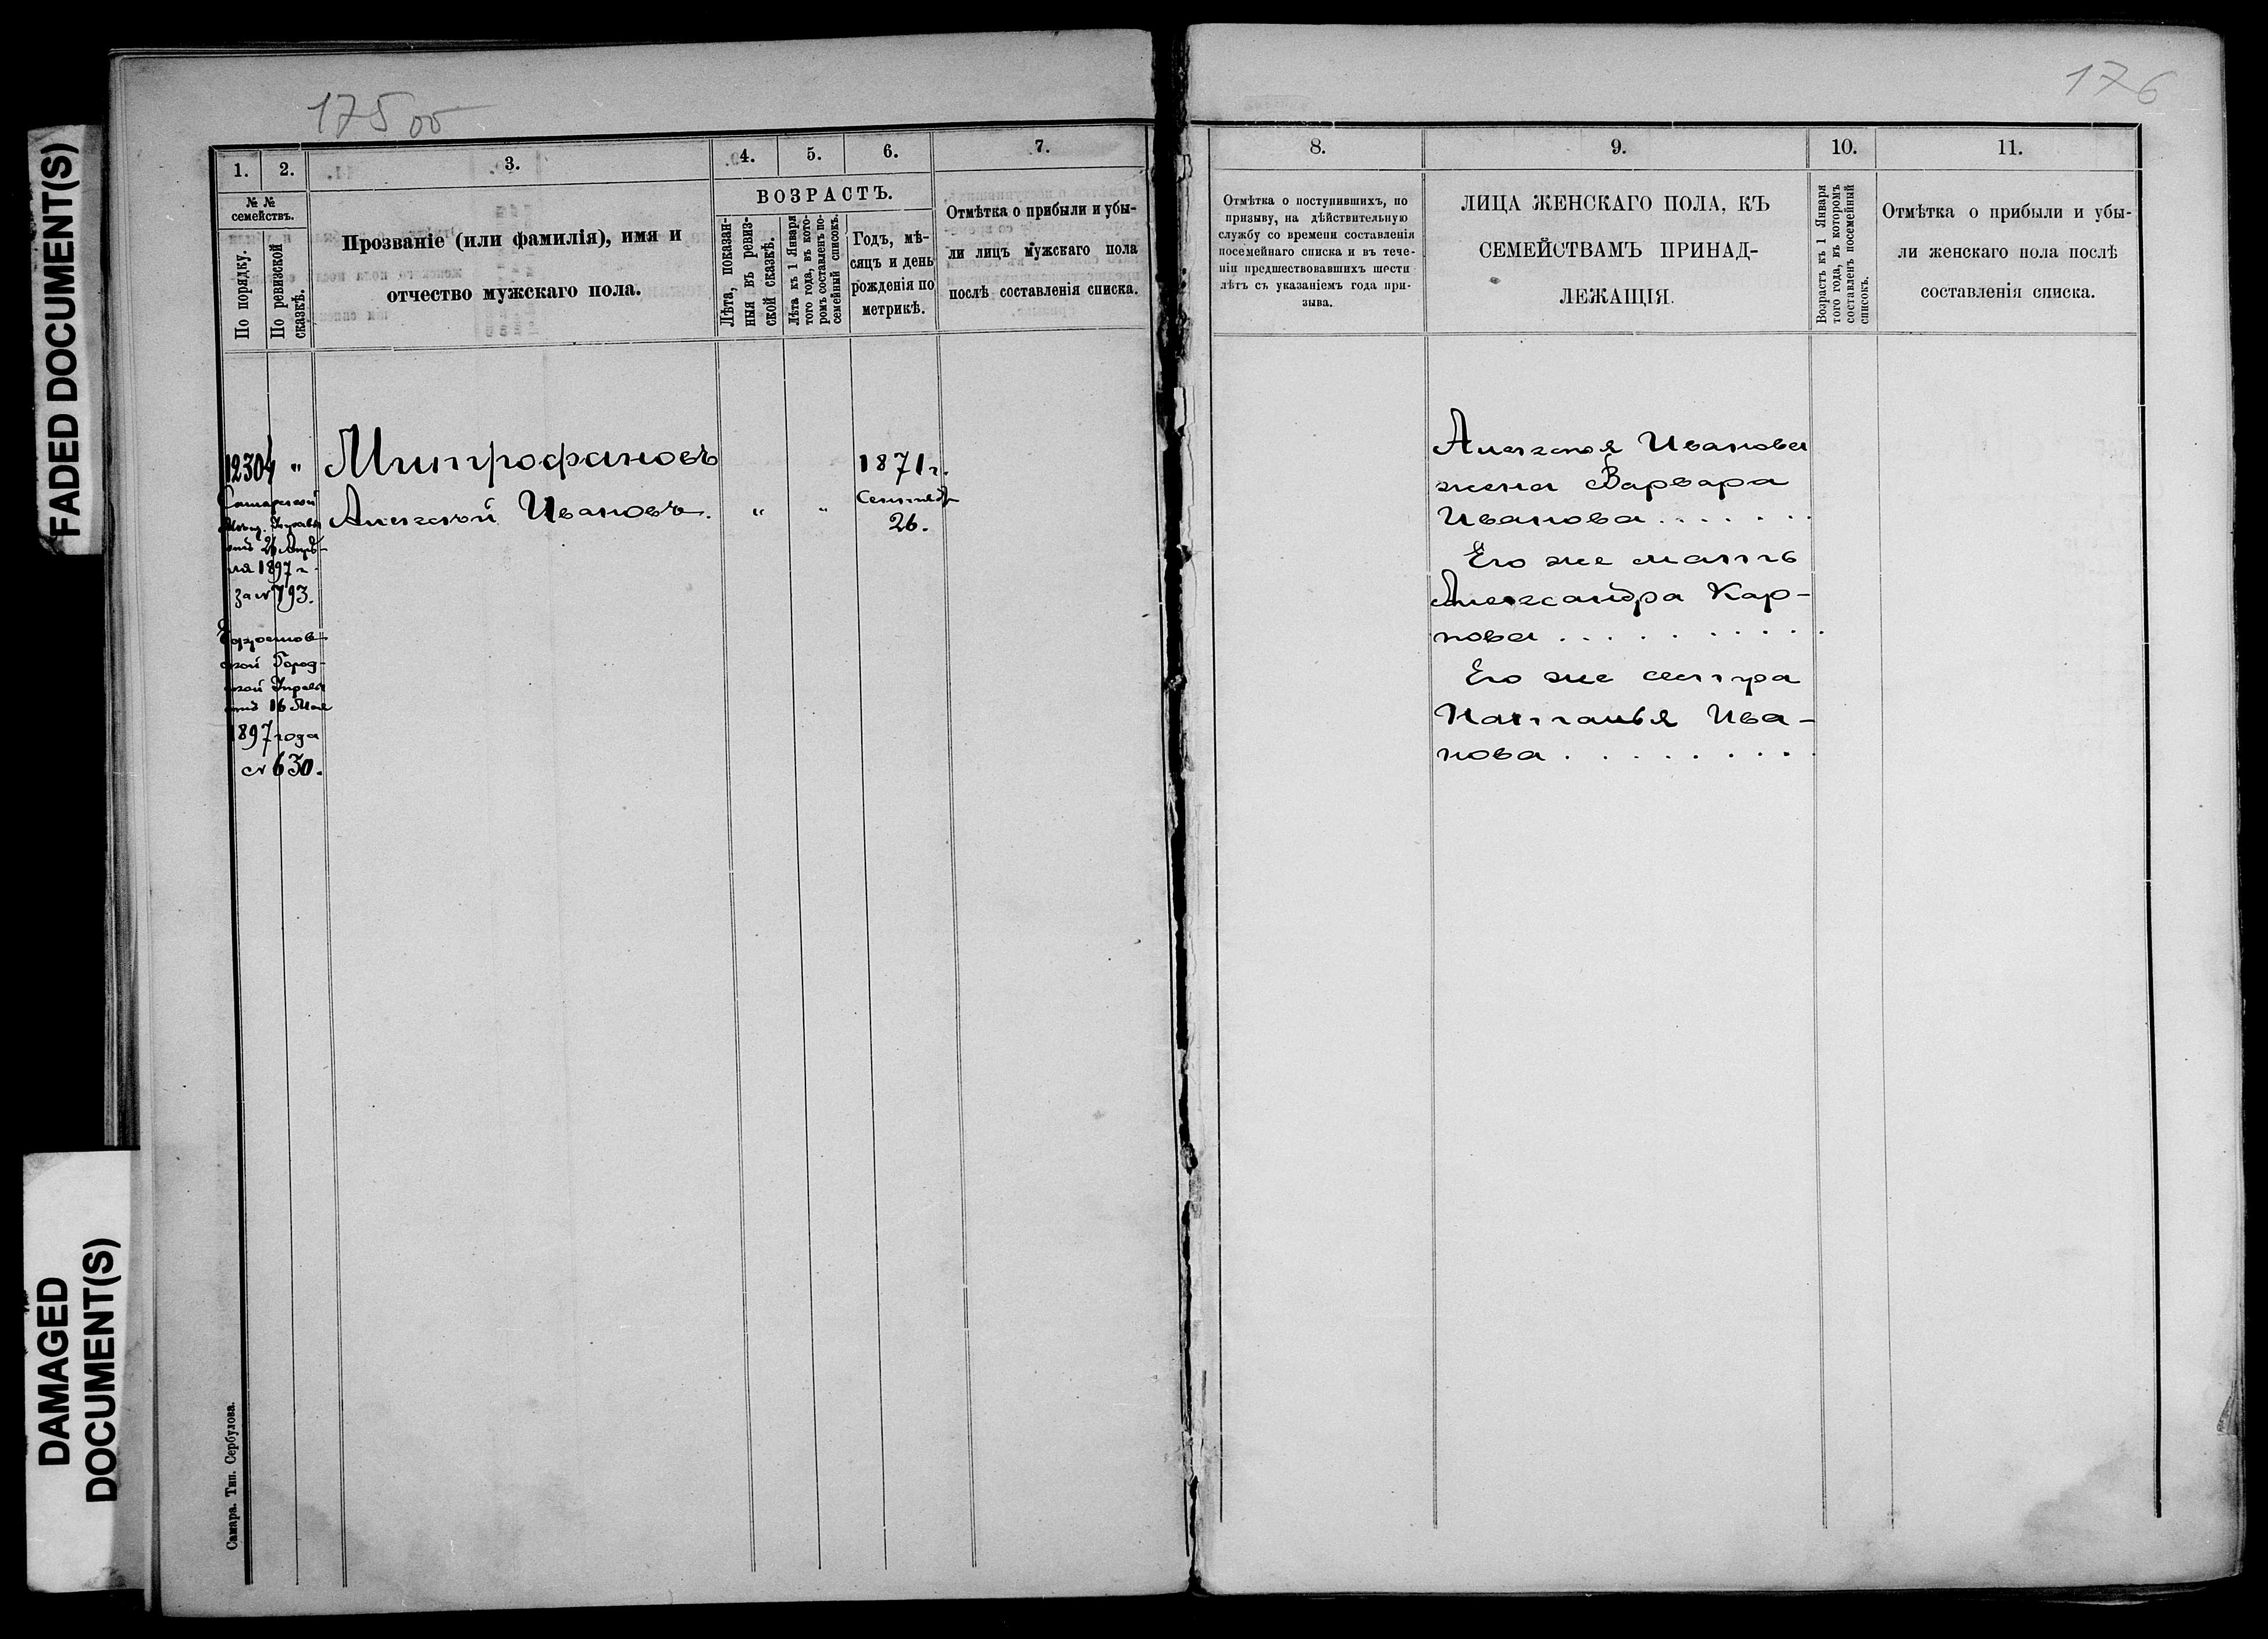 FADED DOCUMENT(S)
DAMAGED
DOCUMENT(S)
175 об
1.
2.
3.
4.
5.
6.
7.
№ №
семействъ.
По порядку.
По ревизской
сказкѣ.
Прозваніе (или фамилія), имя и
отчество мужскаго пола.
ВОЗРАСТЪ.
Лѣта, показан-
ныя въ ревиз-
ской сказкѣ.
Лѣта къ 1 Января
того года, въ кото-
ромъ составленъ по-
семейный списокъ.
Годъ, мѣ-
сяцъ и день
рожденія по
метрикѣ.
Отмѣтка о прибыли и убы-
ли лицъ мужскаго пола
послѣ составленія списка.
12304 "
Митрофановъ
1871 г.
Самарской
Алексѣй Ивановъ. " "
Сентябр
26.
Мѣщ. Управы
отъ 26 Апрѣ-
ля 1897 г.
за № 793.
ской Город-
ской Управы
отъ 16 Мая
1897 года
№ 630.
Самара. Тип. Сербулова.
176
8.
9.
10.
11.
Отмѣтка о поступившихъ, по
призыву, на дѣйствительную
службу со времени составленія
посемейнаго списка и въ тече-
ніи предшествовавшихъ шести
лѣтъ съ указаніемъ года при-
зыва.
ЛИЦА ЖЕНСКАГО ПОЛА, КЪ
СЕМЕЙСТВАМЪ ПРИНАД-
ЛЕЖАЩІЯ.
Возрастъ къ 1 Января
того года, въ которомъ
составленъ посемейный
списокъ.
Отмѣтка о прибыли и убы-
ли женскаго пола послѣ
составленія списка.
Алексѣя Иванова
жена Варвара
Иванова . . . . . . .
Его же мать
Александра Кар-
пова . . . . . . . . . .
Его же сестра
Наталья Ива-
нова . . . . . . . . .